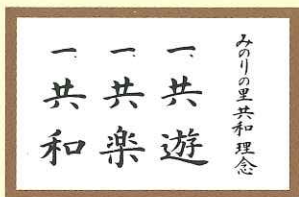 みのりの里共和理念
一、共遊
一、共楽
一、共和